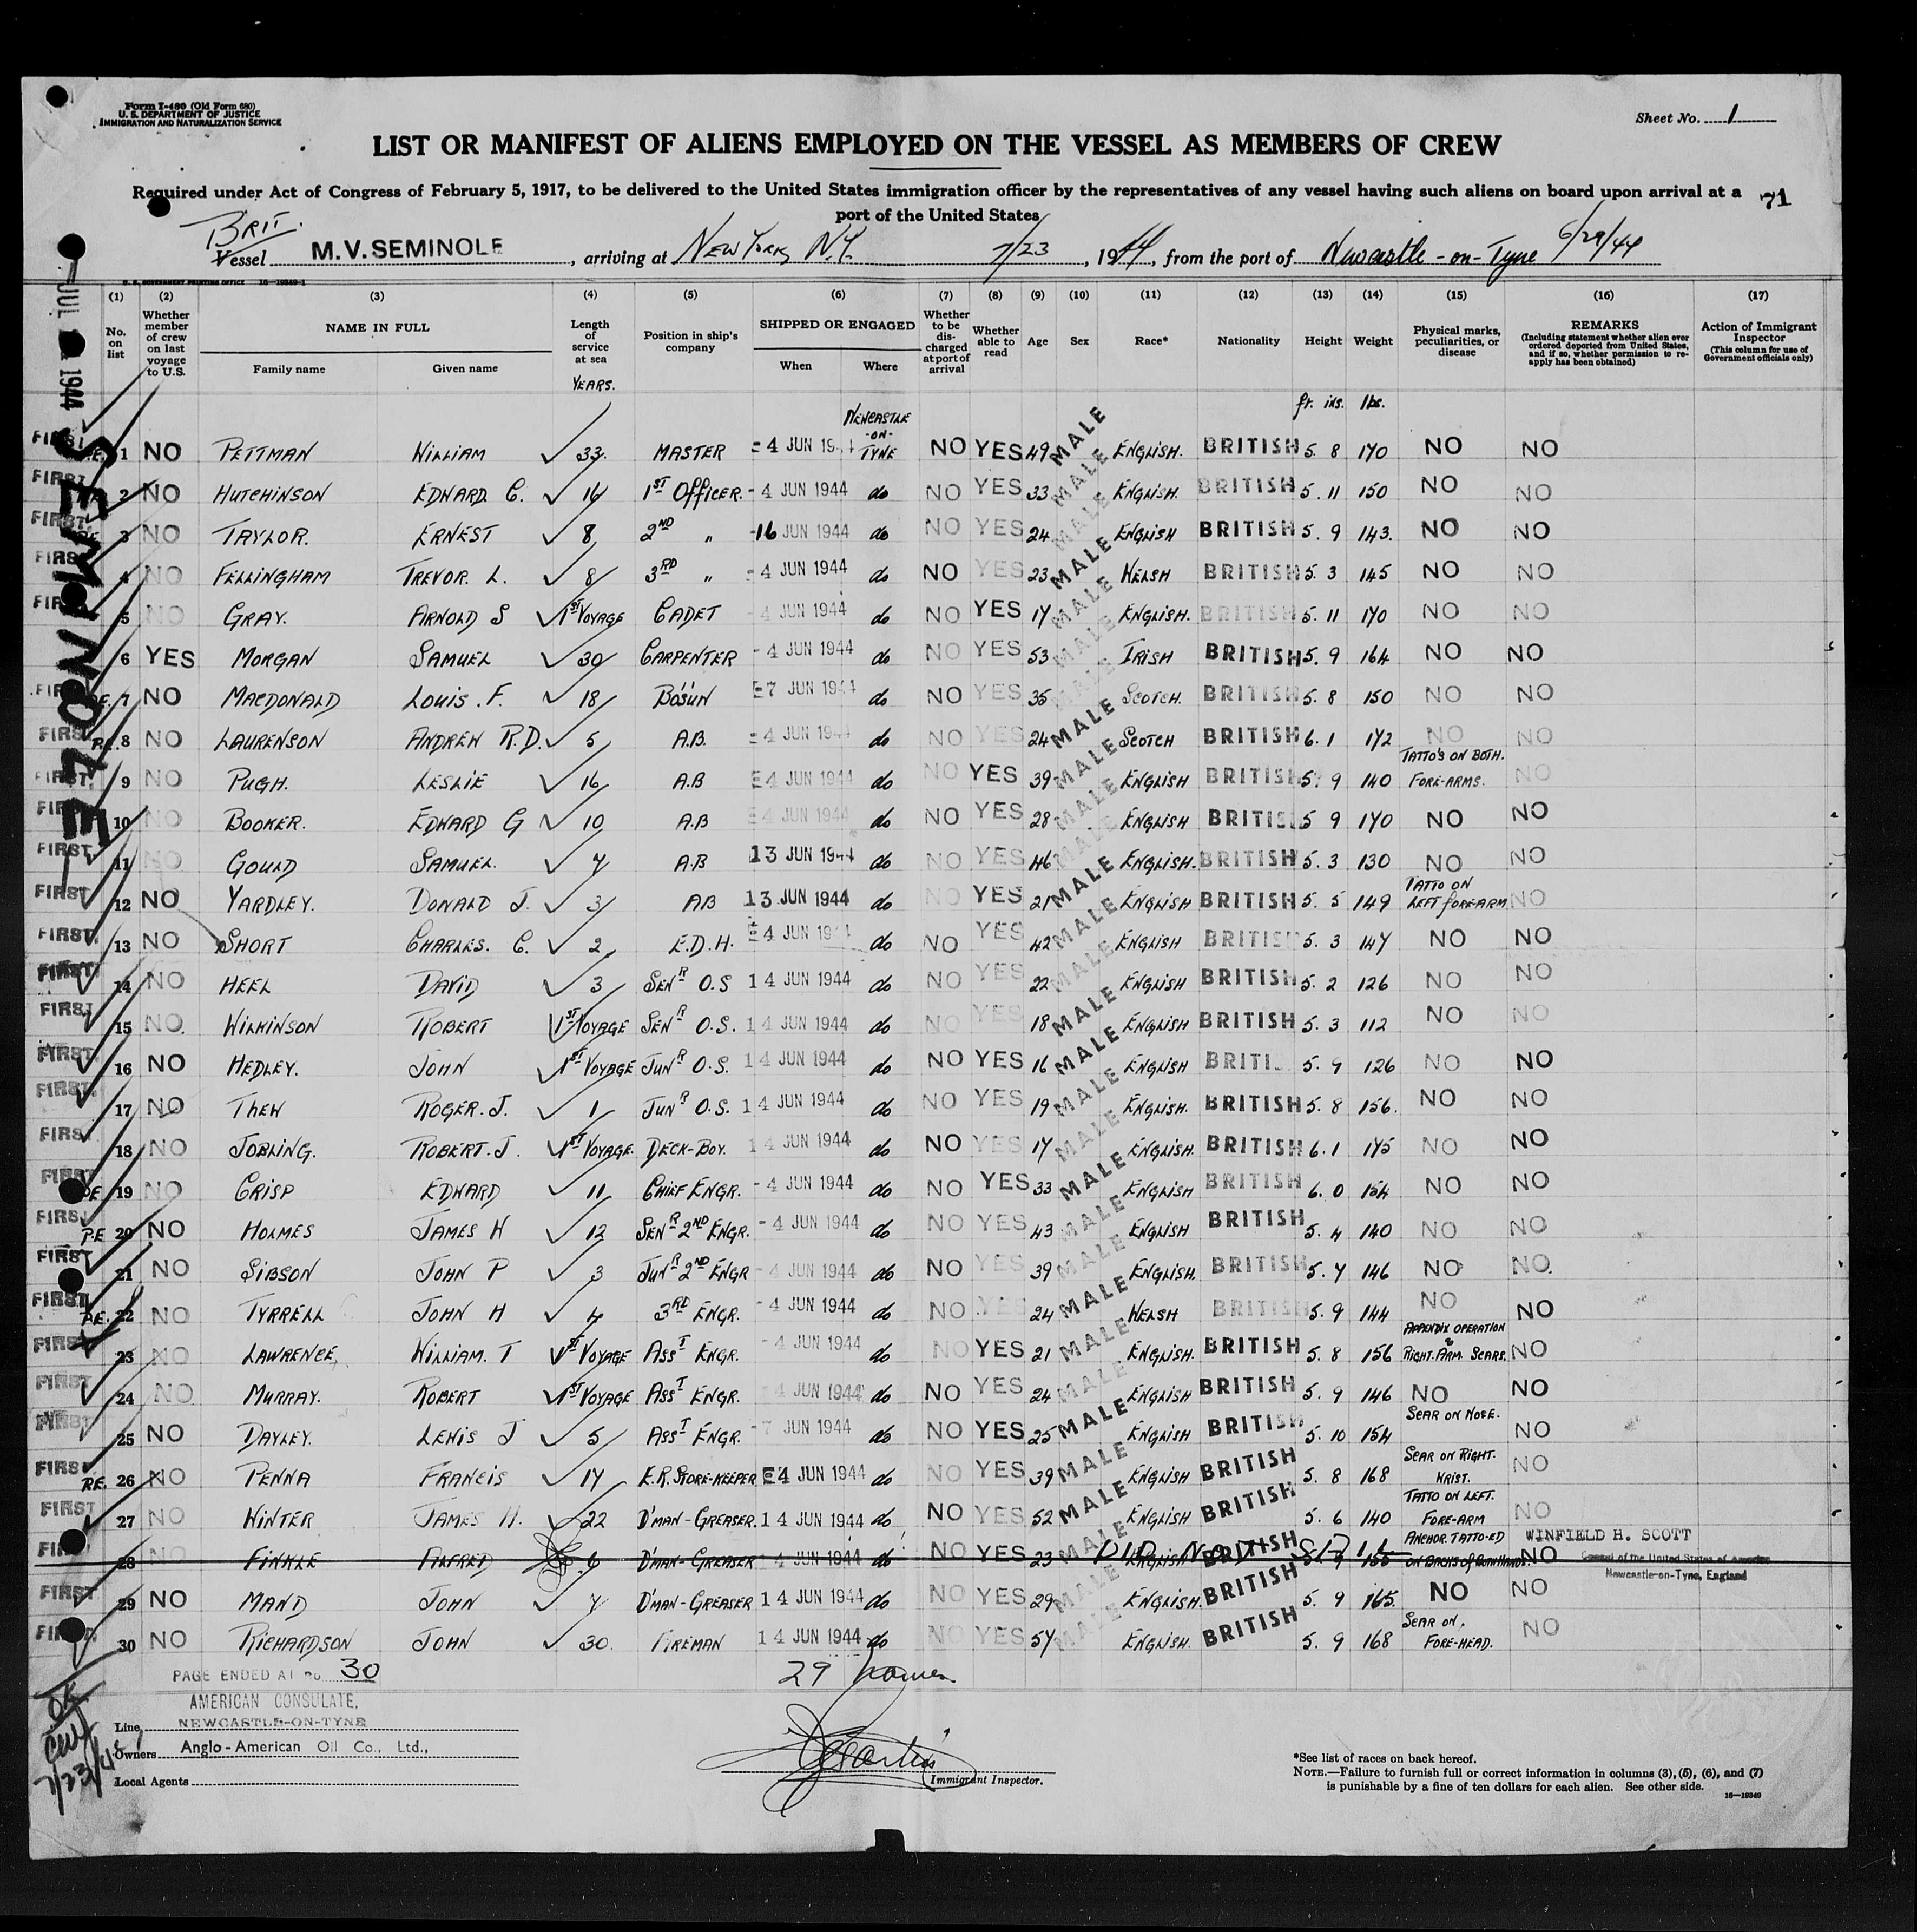 Form I-480 (Old Form 680)
U. S. DEPARTMENT OF JUSTICE
IMMIGRATION AND NATURALIZATION SERVICE
Sheet No. 1
LIST OR MANIFEST OF ALIENS EMPLOYED ON THE VESSEL AS MEMBERS OF CREW
Required under Act of Congress of February 5, 1917, to be delivered to the United States immigration officer by the representatives of any vessel having such aliens on board upon arrival at a
port of the United States
71
BRIT.
Vessel M.V. SEMINOLE, arriving at NEW YORK, N.Y. 7/23, 1944, from the port of Newcastle-on-Tyne 6/29/44
U. S. GOVERNMENT PRINTING OFFICE 16—19349-1
(1) (2) (3) (4) (5) (6) (7) (8) (9) (10) (11) (12) (13) (14) (15) (16) (17)
No. on list
Whether member of crew on last voyage to U.S.
NAME IN FULL
Family name
Given name
Length of service at sea
YEARS.
Position in ship's company
SHIPPED OR ENGAGED
When
Where
Whether to be discharged at port of arrival
Whether able to read
Age
Sex
Race*
Nationality
Height
Weight
Physical marks, peculiarities, or disease
REMARKS
(Including statement whether alien ever ordered deported from United States, and if so, whether permission to reapply has been obtained)
Action of Immigrant Inspector
(This column for use of Government officials only)
ft. ins. lbs.
SEMINOLE
FIRST 1 NO PETTMAN WILLIAM 33 MASTER 4 JUN 1944 NEWCASTLE -ON- TYNE NO YES 49 MALE ENGLISH. BRITISH 5. 8 170 NO NO
FIRST 2 NO HUTCHINSON EDWARD C. 16 1ST OFFICER. 4 JUN 1944 do NO YES 33 MALE ENGLISH. BRITISH 5. 11 150 NO NO
FIRST 3 NO TAYLOR. ERNEST 8 2ND " 16 JUN 1944 do NO YES 24 MALE ENGLISH BRITISH 5. 9 143. NO NO
FIRST 4 NO FELLINGHAM TREVOR. L. 8 3RD " 4 JUN 1944 do NO YES 23 MALE WELSH BRITISH 5. 3 145 NO NO
FIRST 5 NO GRAY. ARNOLD S 1ST VOYAGE CADET 4 JUN 1944 do NO YES 17 MALE ENGLISH. BRITISH 5. 11 170 NO NO
6 YES MORGAN SAMUEL 30 CARPENTER 4 JUN 1944 do NO YES 53 MALE IRISH BRITISH 5. 9 164 NO NO
FIRST P.E. 7 NO MACDONALD LOUIS. F. 18 BOSUN 7 JUN 1944 do NO YES 35 MALE SCOTCH. BRITISH 5. 8 150 NO NO
FIRST P.E. 8 NO LAURENSON ANDREW R.D. 5 A.B. 4 JUN 1944 do NO YES 24 MALE SCOTCH BRITISH 6. 1 172 NO NO
FIRST 9 NO PUGH. LESLIE 16 A.B 4 JUN 1944 do NO YES 39 MALE ENGLISH BRITISH 5. 9 140 TATTO'S ON BOTH. FORE-ARMS. NO
FIRST 10 NO BOOKER. EDWARD G 10 A.B 4 JUN 1944 do NO YES 28 MALE ENGLISH BRITISH 5 9 170 NO NO
FIRST 11 NO GOULD SAMUEL. 7 A.B 13 JUN 1944 do NO YES 46 MALE ENGLISH. BRITISH 5. 3 130 NO NO
FIRST 12 NO YARDLEY. DONALD J. 3 AB 13 JUN 1944 do NO YES 21 MALE ENGLISH BRITISH 5. 5 149 TATTO ON LEFT FORE-ARM NO
FIRST 13 NO SHORT CHARLES. C. 2 E.D.H. 4 JUN 1944 do NO YES 42 MALE ENGLISH BRITISH 5. 3 147 NO NO
FIRST 14 NO HEEL DAVID 3 SENR O.S 14 JUN 1944 do NO YES 22 MALE ENGLISH BRITISH 5. 2 126 NO NO
FIRST 15 NO. WILKINSON ROBERT 1ST VOYAGE SENR O.S. 14 JUN 1944 do NO YES 18 MALE ENGLISH BRITISH 5. 3 112 NO NO
FIRST 16 NO HEDLEY. JOHN 1ST VOYAGE JUNR O.S. 14 JUN 1944 do NO YES 16 MALE ENGLISH BRITISH 5. 9 126 NO NO
FIRST 17 NO THEW ROGER. J. 1 JUNR O.S. 14 JUN 1944 do NO YES 19 MALE ENGLISH. BRITISH 5. 8 156. NO NO
FIRST 18 NO JOBLING. ROBERT. J. 1ST VOYAGE. DECK-BOY. 14 JUN 1944 do NO YES 17 MALE ENGLISH. BRITISH 6. 1 175 NO NO
FIRST P.E. 19 NO CRISP EDWARD 11 CHIEF ENGR. 4 JUN 1944 do NO YES 33 MALE ENGLISH BRITISH 6. 0 154 NO NO
FIRST P.E 20 NO HOLMES JAMES H 12 SENR 2ND ENGR. 4 JUN 1944 do NO YES 43 MALE ENGLISH BRITISH 5. 4 140 NO NO
FIRST 21 NO SIBSON JOHN P 3 JUNR 2ND ENGR 4 JUN 1944 do NO YES 39 MALE ENGLISH. BRITISH 5. 7 146 NO NO.
FIRST P.E. 22 NO TYRRELL JOHN H 4 3RD ENGR. 4 JUN 1944 do NO YES 24 MALE WELSH BRITISH 5. 9 144 NO NO
FIRST 23 NO LAWRENCE, WILLIAM. T 1ST VOYAGE ASST ENGR. 4 JUN 1944 do NO YES 21 MALE ENGLISH. BRITISH 5. 8 156 APPENDIX OPERATION & RIGHT. ARM. SCARS. NO
FIRST 24 NO MURRAY. ROBERT 1ST VOYAGE ASST ENGR. 4 JUN 1944 do NO YES 24 MALE ENGLISH BRITISH 5. 9 146 NO NO
FIRST 25 NO DAYLEY. LEWIS J 5 ASST ENGR. 7 JUN 1944 do NO YES 25 MALE ENGLISH BRITISH 5. 10 154 SCAR ON NOSE. NO
FIRST P.E. 26 NO PENNA FRANCIS 17 E.R. STORE-KEEPER 4 JUN 1944 do NO YES 39 MALE ENGLISH BRITISH 5. 8 168 SCAR ON RIGHT. WRIST. NO
FIRST 27 NO WINTER JAMES H. 22 D'MAN-GREASER. 14 JUN 1944 do NO YES 52 MALE ENGLISH BRITISH 5. 6 140 TATTO ON LEFT. FORE-ARM NO
FIRST 28 NO FINKLE ALFRED 6 D'MAN-GREASER 14 JUN 1944 do NO YES 23 MALE ENGLISH BRITISH DID NOT SAIL ANCHOR TATTO-ED ON BACKS OF BOTH HANDS. NO
WINFIELD H. SCOTT
Consul of the United States of America
Newcastle-on-Tyne, England
FIRST 29 NO MAND JOHN 7 D'MAN-GREASER 14 JUN 1944 do NO YES 29 MALE ENGLISH. BRITISH 5. 9 165 NO NO
FIRST 30 NO RICHARDSON JOHN 30. FIREMAN 14 JUN 1944 do NO YES 57 MALE ENGLISH. BRITISH 5. 9 168 SCAR ON, FORE-HEAD. NO
PAGE ENDED AT No. 30
29 names
AMERICAN CONSULATE,
Line NEWCASTLE-ON-TYNE
Owners Anglo-American Oil Co., Ltd.,
Local Agents
7/23/44
Immigrant Inspector.
*See list of races on back hereof.
NOTE.—Failure to furnish full or correct information in columns (3), (5), (6), and (7)
is punishable by a fine of ten dollars for each alien. See other side.
16—19349